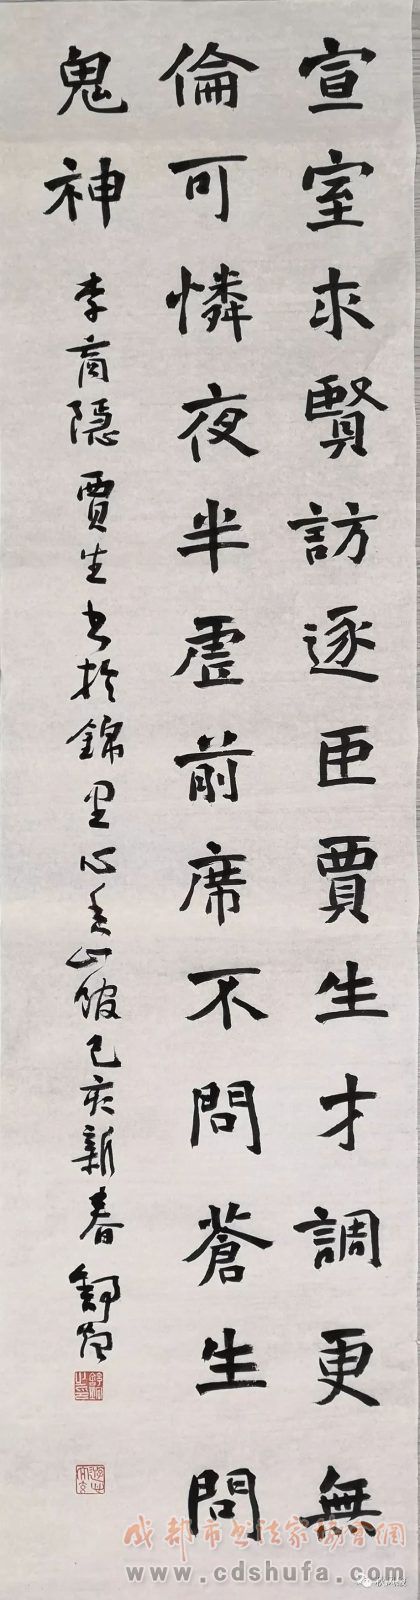 宣室求賢訪逐臣賈生才調更無
倫可憐夜半虛前席不問蒼生問
鬼神
李商隱賈生書於錦里心香山館己亥新春
成都市书法家协会网
www.cdshufa.com